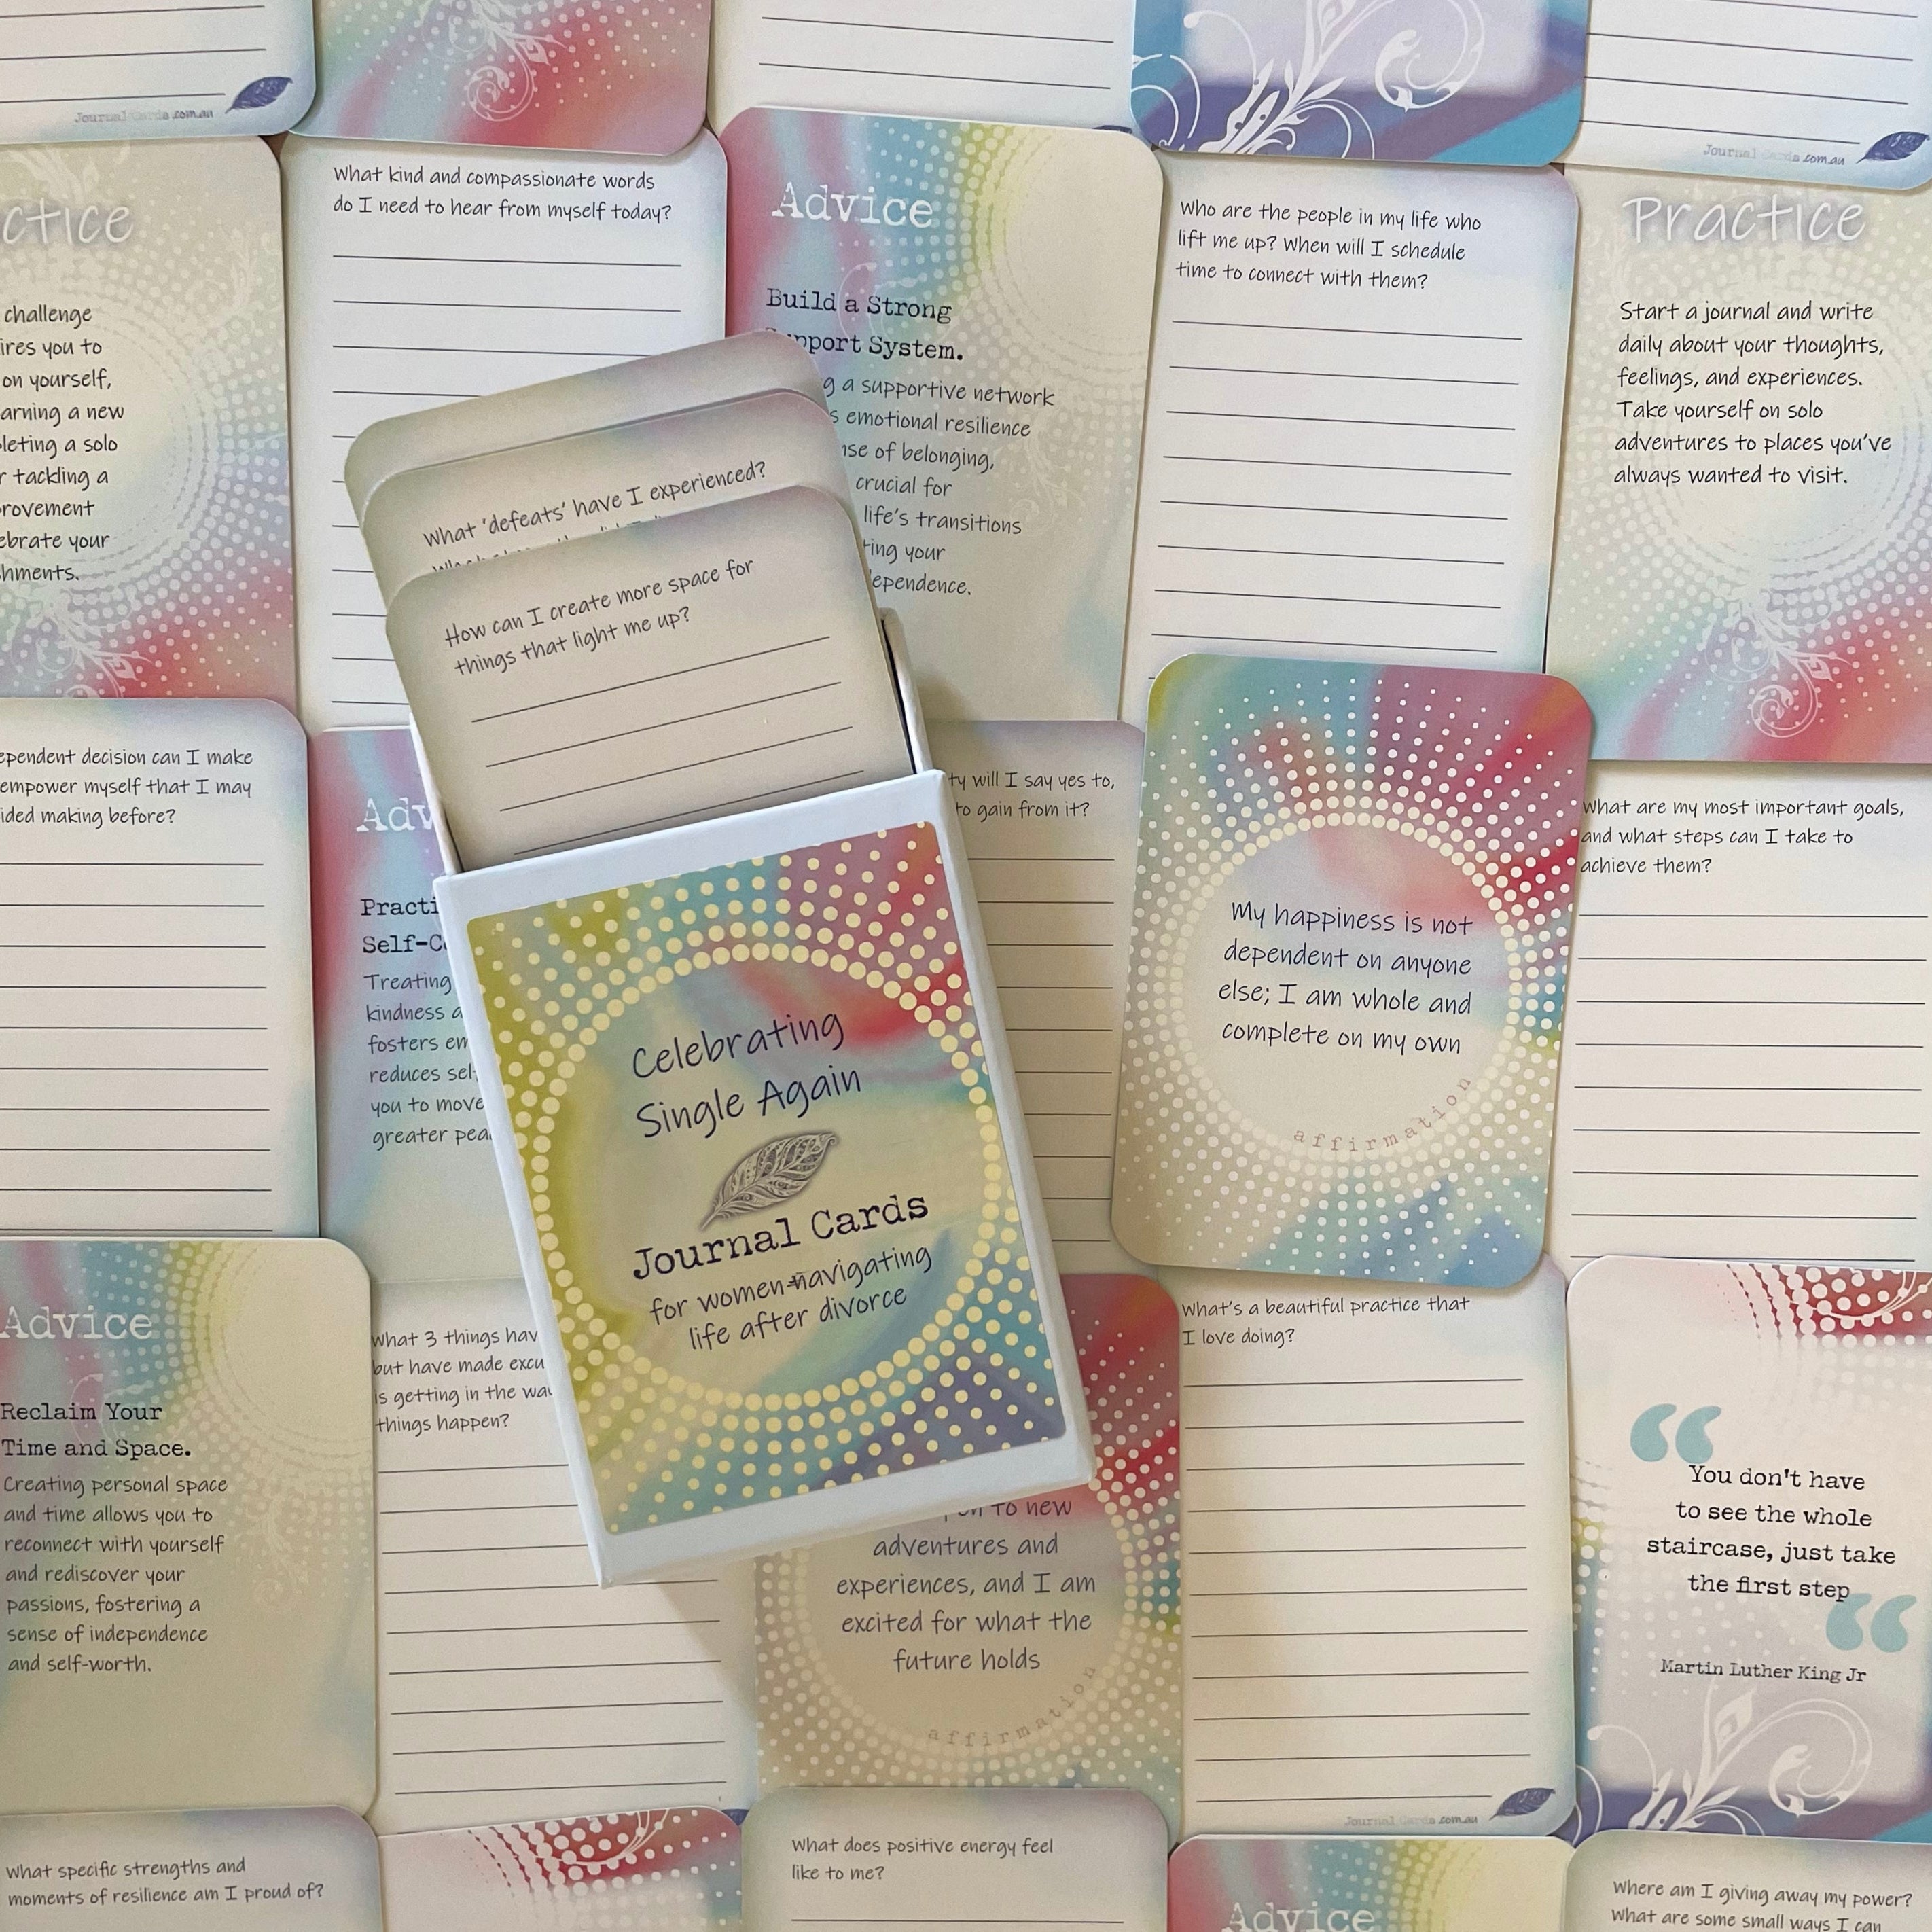 Journal Cards.com.au
Journal Cards.com.au
ctice
challenge
ires you to
on yourself,
arning a new
leting a solo
r tackling a
rovement
ebrate your
hments.
What kind and compassionate words
do I need to hear from myself today?
Advice
Build a Strong
pport System.
g a supportive network
s emotional resilience
nse of belonging,
crucial for
life's transitions
ting your
ependence.
Who are the people in my life who
lift me up? When will I schedule
time to connect with them?
Practice
Start a journal and write
daily about your thoughts,
feelings, and experiences.
Take yourself on solo
adventures to places you've
always wanted to visit.
What 'defeats' have I experienced?
How can I create more space for
things that light me up?
ependent decision can I make
empower myself that I may
ided making before?
Adv
Practi
Self-C
Treating
kindness a
fosters em
reduces sel
you to move
greater pea
ty will I say yes to,
to gain from it?
My happiness is not
dependent on anyone
else; I am whole and
complete on my own
affirmation
What are my most important goals,
and what steps can I take to
achieve them?
Celebrating
Single Again
Journal Cards
for women navigating
life after divorce
Advice
Reclaim Your
Time and Space.
Creating personal space
and time allows you to
reconnect with yourself
and rediscover your
passions, fostering a
sense of independence
and self-worth.
What 3 things hav
but have made excu
is getting in the wa
things happen?
to new
adventures and
experiences, and I am
excited for what the
future holds
affirmation
What's a beautiful practice that
I love doing?
Journal Cards.com.au
You don't have
to see the whole
staircase, just take
the first step
Martin Luther King Jr
What specific strengths and
moments of resilience am I proud of?
What does positive energy feel
like to me?
Advice
Where am I giving away my power?
What are some small ways I can